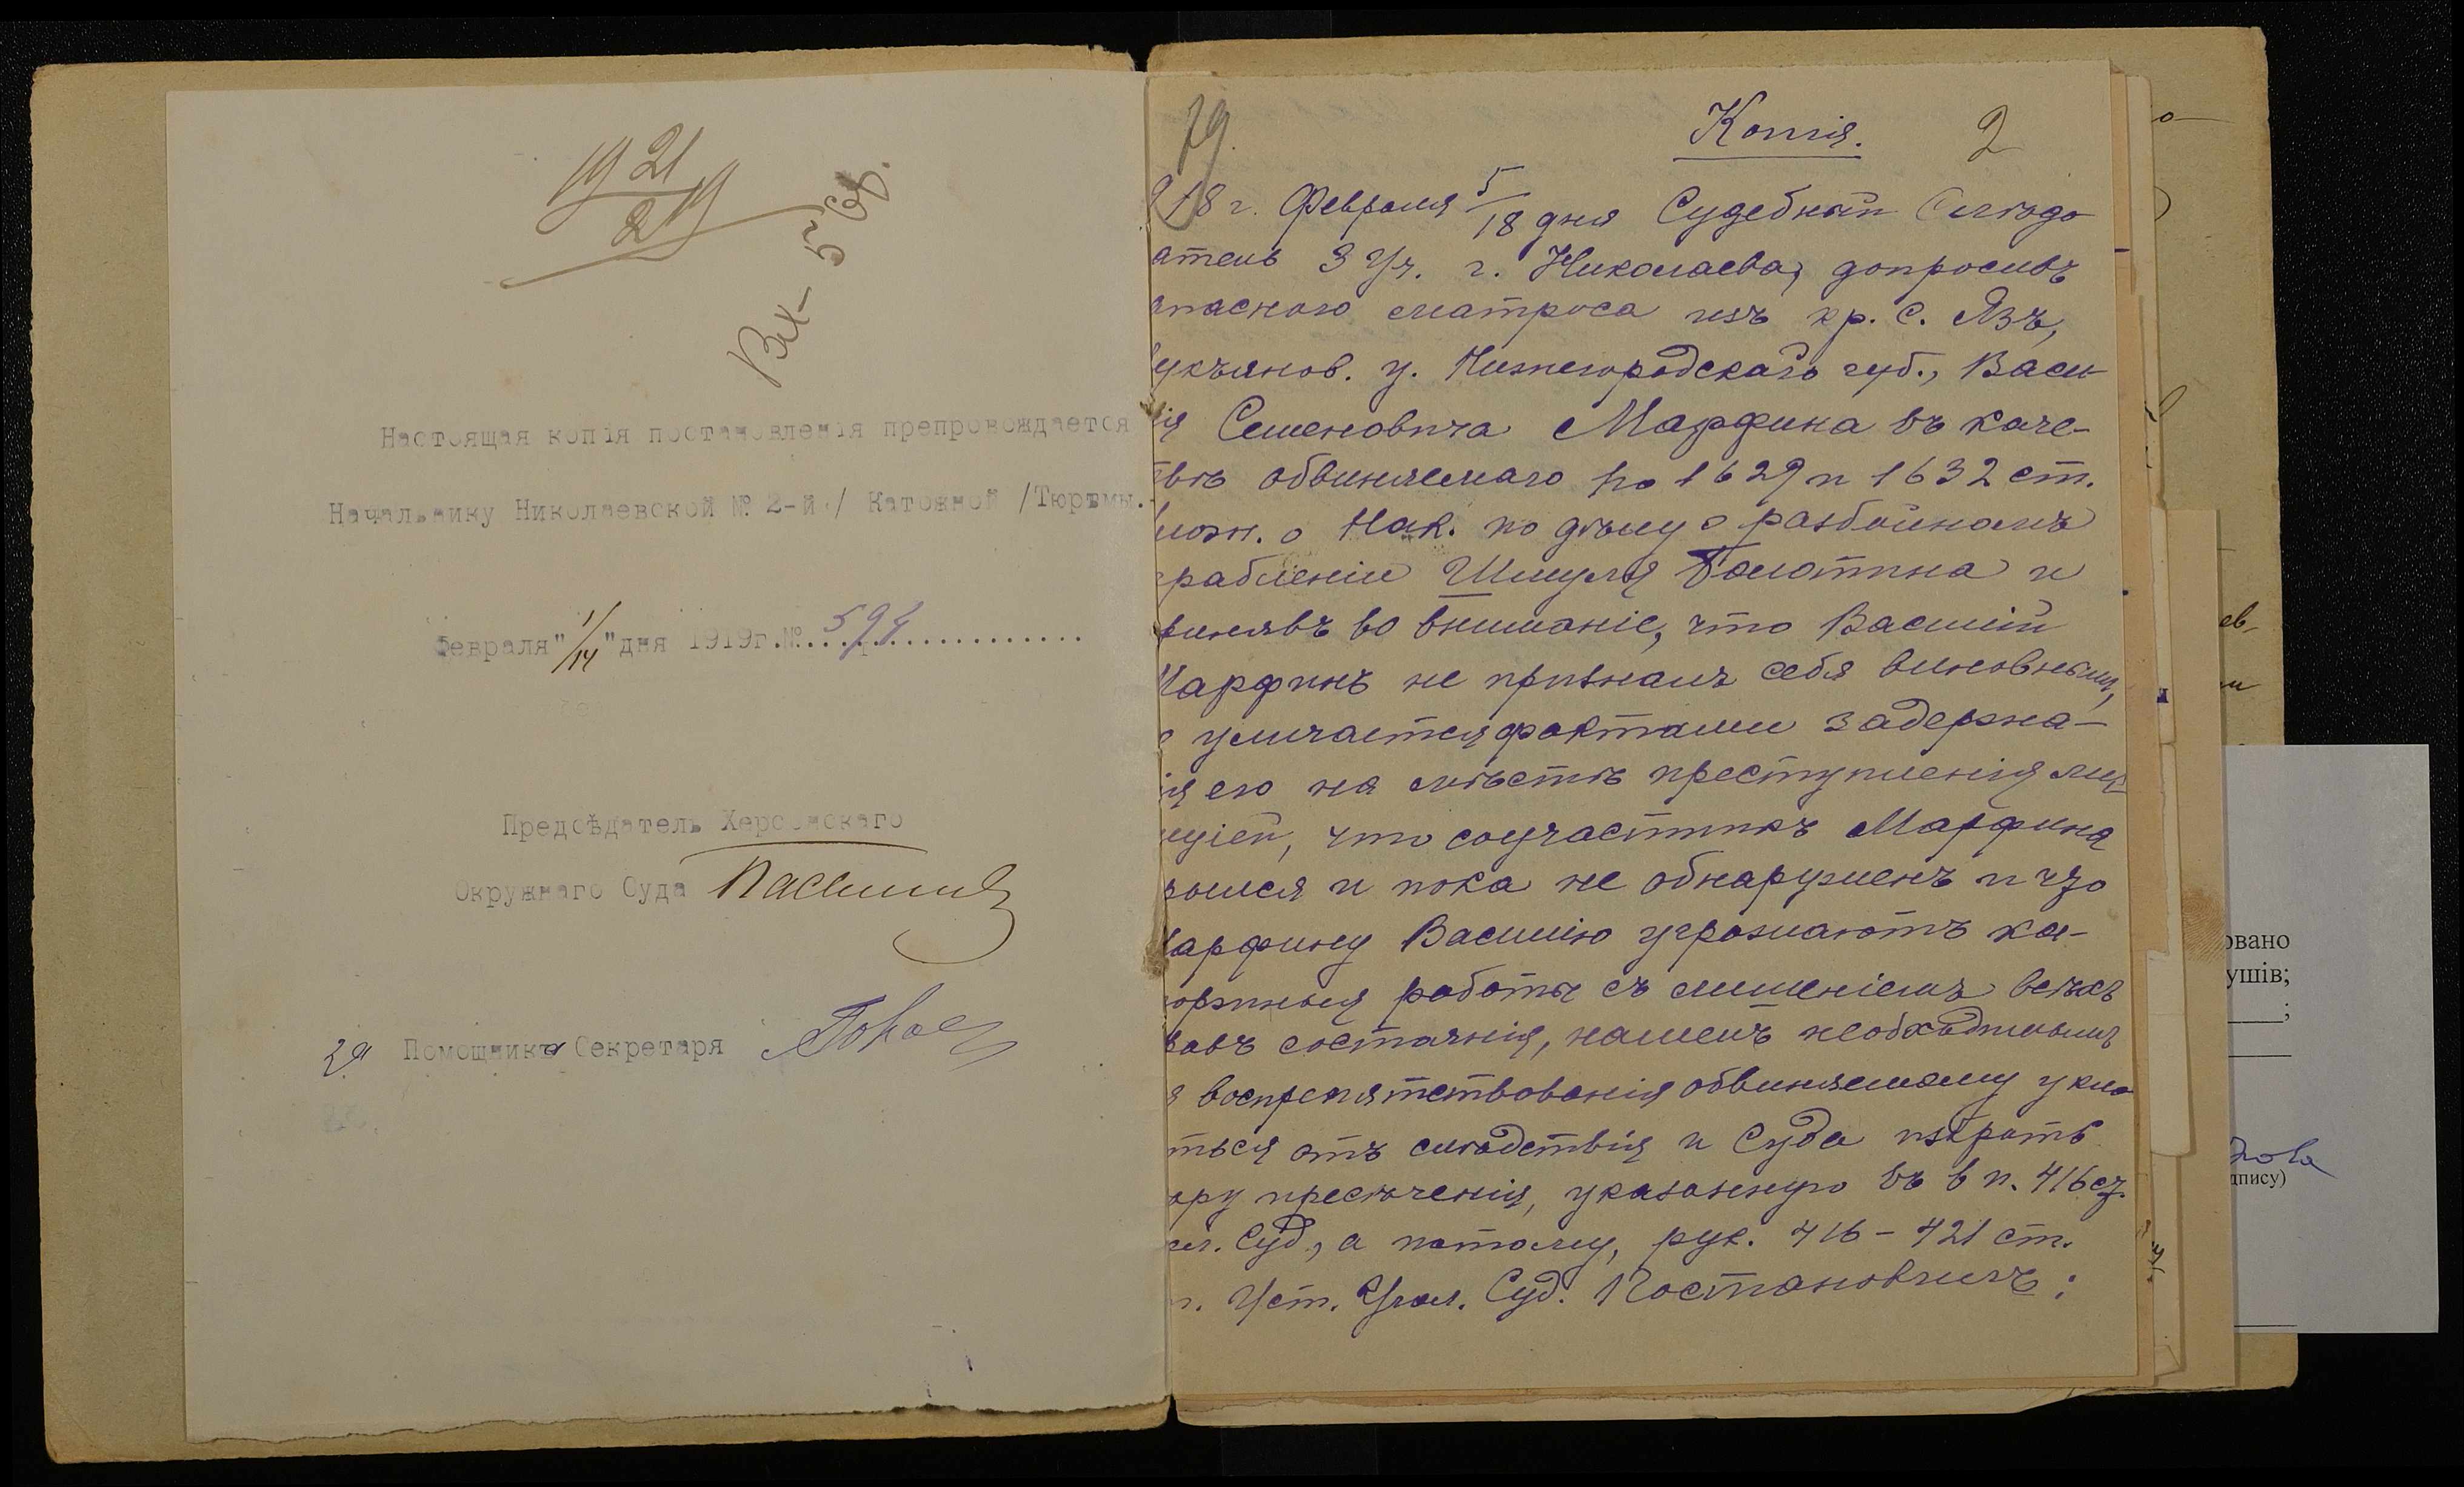 19 21/2 19
Вх - 5 69.
Настоящая копія постановленія препровождается
Начальнику Николаевской № 2-й / Катожной /Тюрьмы.
Февраля" 1/14 "дня 1919г.№...594...............
Предсѣдатель Херсонскаго
Окружнаго Суда
за Помощника Секретаря
79. Копія. 2
918 г. Февраля 5/18 дня Судебный Слѣдо
атель 3 Уч. г. Николаева, допросивъ
апаснаго матроса изъ кр. С. Язъ,
укъянов. у. Нижегородскаго губ., Васи-
ія Семеновича Марфина въ каче-
твѣ обвиняемаго по 1629 и 1632 ст.
лож. о Нак. по дѣлу о разбойномъ
граблении Шмуля Болотина и
ринявъ во вниманіе, что Василій
Марфинъ не призналъ себя виновнымъ,
о уличается фактами задержа-
ія его на мѣстѣ преступленія мил
иціей, что соучастникъ Марфина
рылся и пока не обнаруженъ и что
Марфину Василію угрожаютъ ка-
оржныя работы съ лишеніемъ всѣхъ
равъ состоянія, нашелъ необходимымъ
я воспрепятствованія обвиняемому укло
ться отъ слѣдствія и Суда избрать
ѣру пресѣченія, указанную въ 6 п. 416 ст.
ол. Суд., а потому, рук. 416 - 421 ст.
т. Уст. Угол. Суд. Постановилъ:
ев,
овано
ушів;
;
дпису)